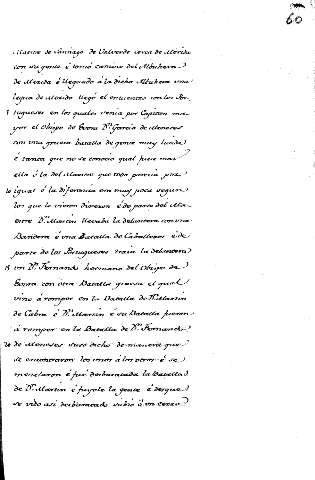 60
Maestre de Santiago de Valverde cerca de Merida
con su gente é tomó camino del Albuhera
de Merida é llegando á la dicha Albuhera una
legua de Merida llegó al encuentro con los Por
5 tugueses en los quales venia por Capitan ma
yor el Obispo de Evora Dn. Garcia de Meneses
con una gruesa batalla de gente muy lucida
é tanta que no se conocio qual fuese mas
ella ó la del Maestre que mas parecia
10 igual ó la diferencia era muy poca segun
los que lo vieron dixeron é de parte del Ma
estre Dn. Martin llevaba la delantera con una
Bandera é una Batalla de Caballeros é de
parte de los Portugueses traia la delantera
15 un Dn. Fernando hermano del Obispo de
Evora con otra Batalla gruesa el qual
vino á romper en la Batalla de Dn. Martin
de Cordoba é Dn. Martin é su Batalla fueron
á romper en la Batalla de Dn. Fernando
20 de Meneses suso dicho de manera que
se encontraron los unos á los otros é se
mezclaron é fué desbaratada la Batalla
de Dn. Martin é fuyole la gente é desque
se vido asi desbaratado subió á un cerro